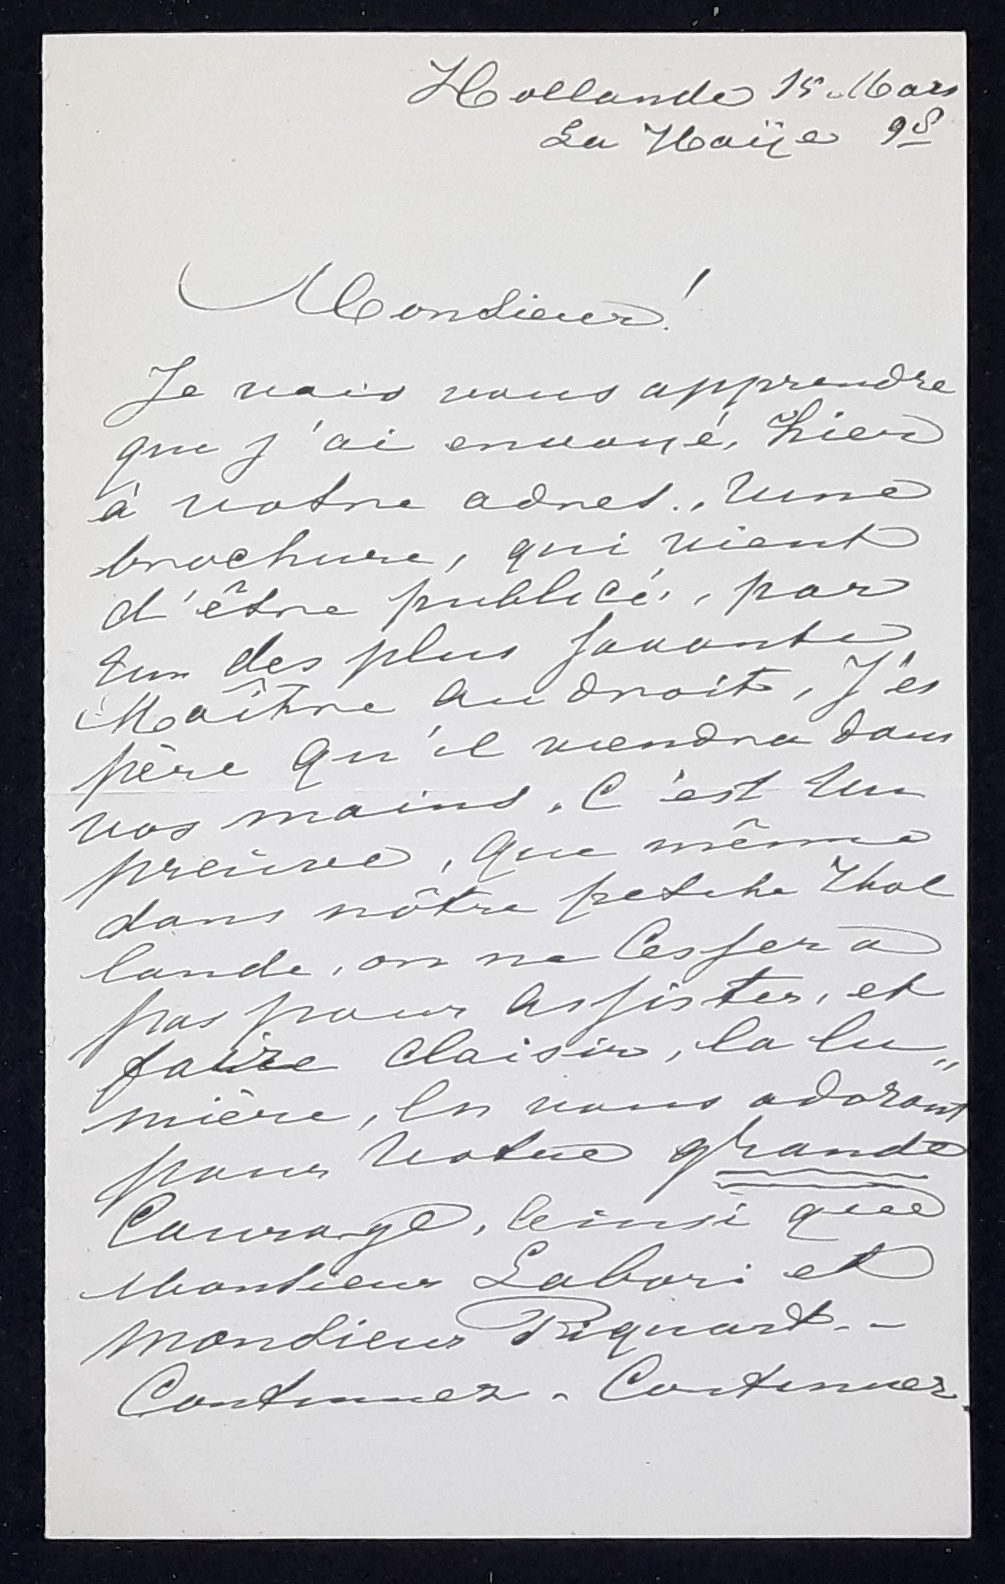 Hollande 15 Mars
La Haÿe 98
Monsieur!
Je vais vous apprendre
que j'ai envoyé, hier
à votre adres., une
brochure, qui vient
d'être publicé, par
un des plus savants
Maître au droit, J'es
père qu'il viendra dans
vos mains. C'est un
preuve, que même
dans nôtre petite Hol
lande, on ne cessera
pas pour assister, et
faire claisir, la lu„
mière, en vous adorant
pour votre grande
Courage, ainsi que
Monsieur Labori et
Monsieur Piquart--
Continuez - Continuez.